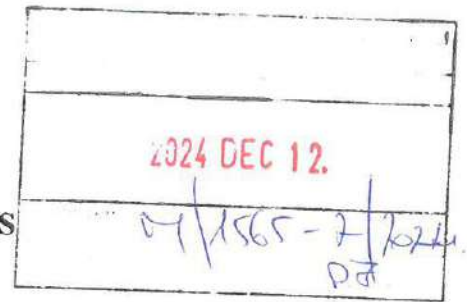 2024 DEC 12.
s
/1565-7/2024.